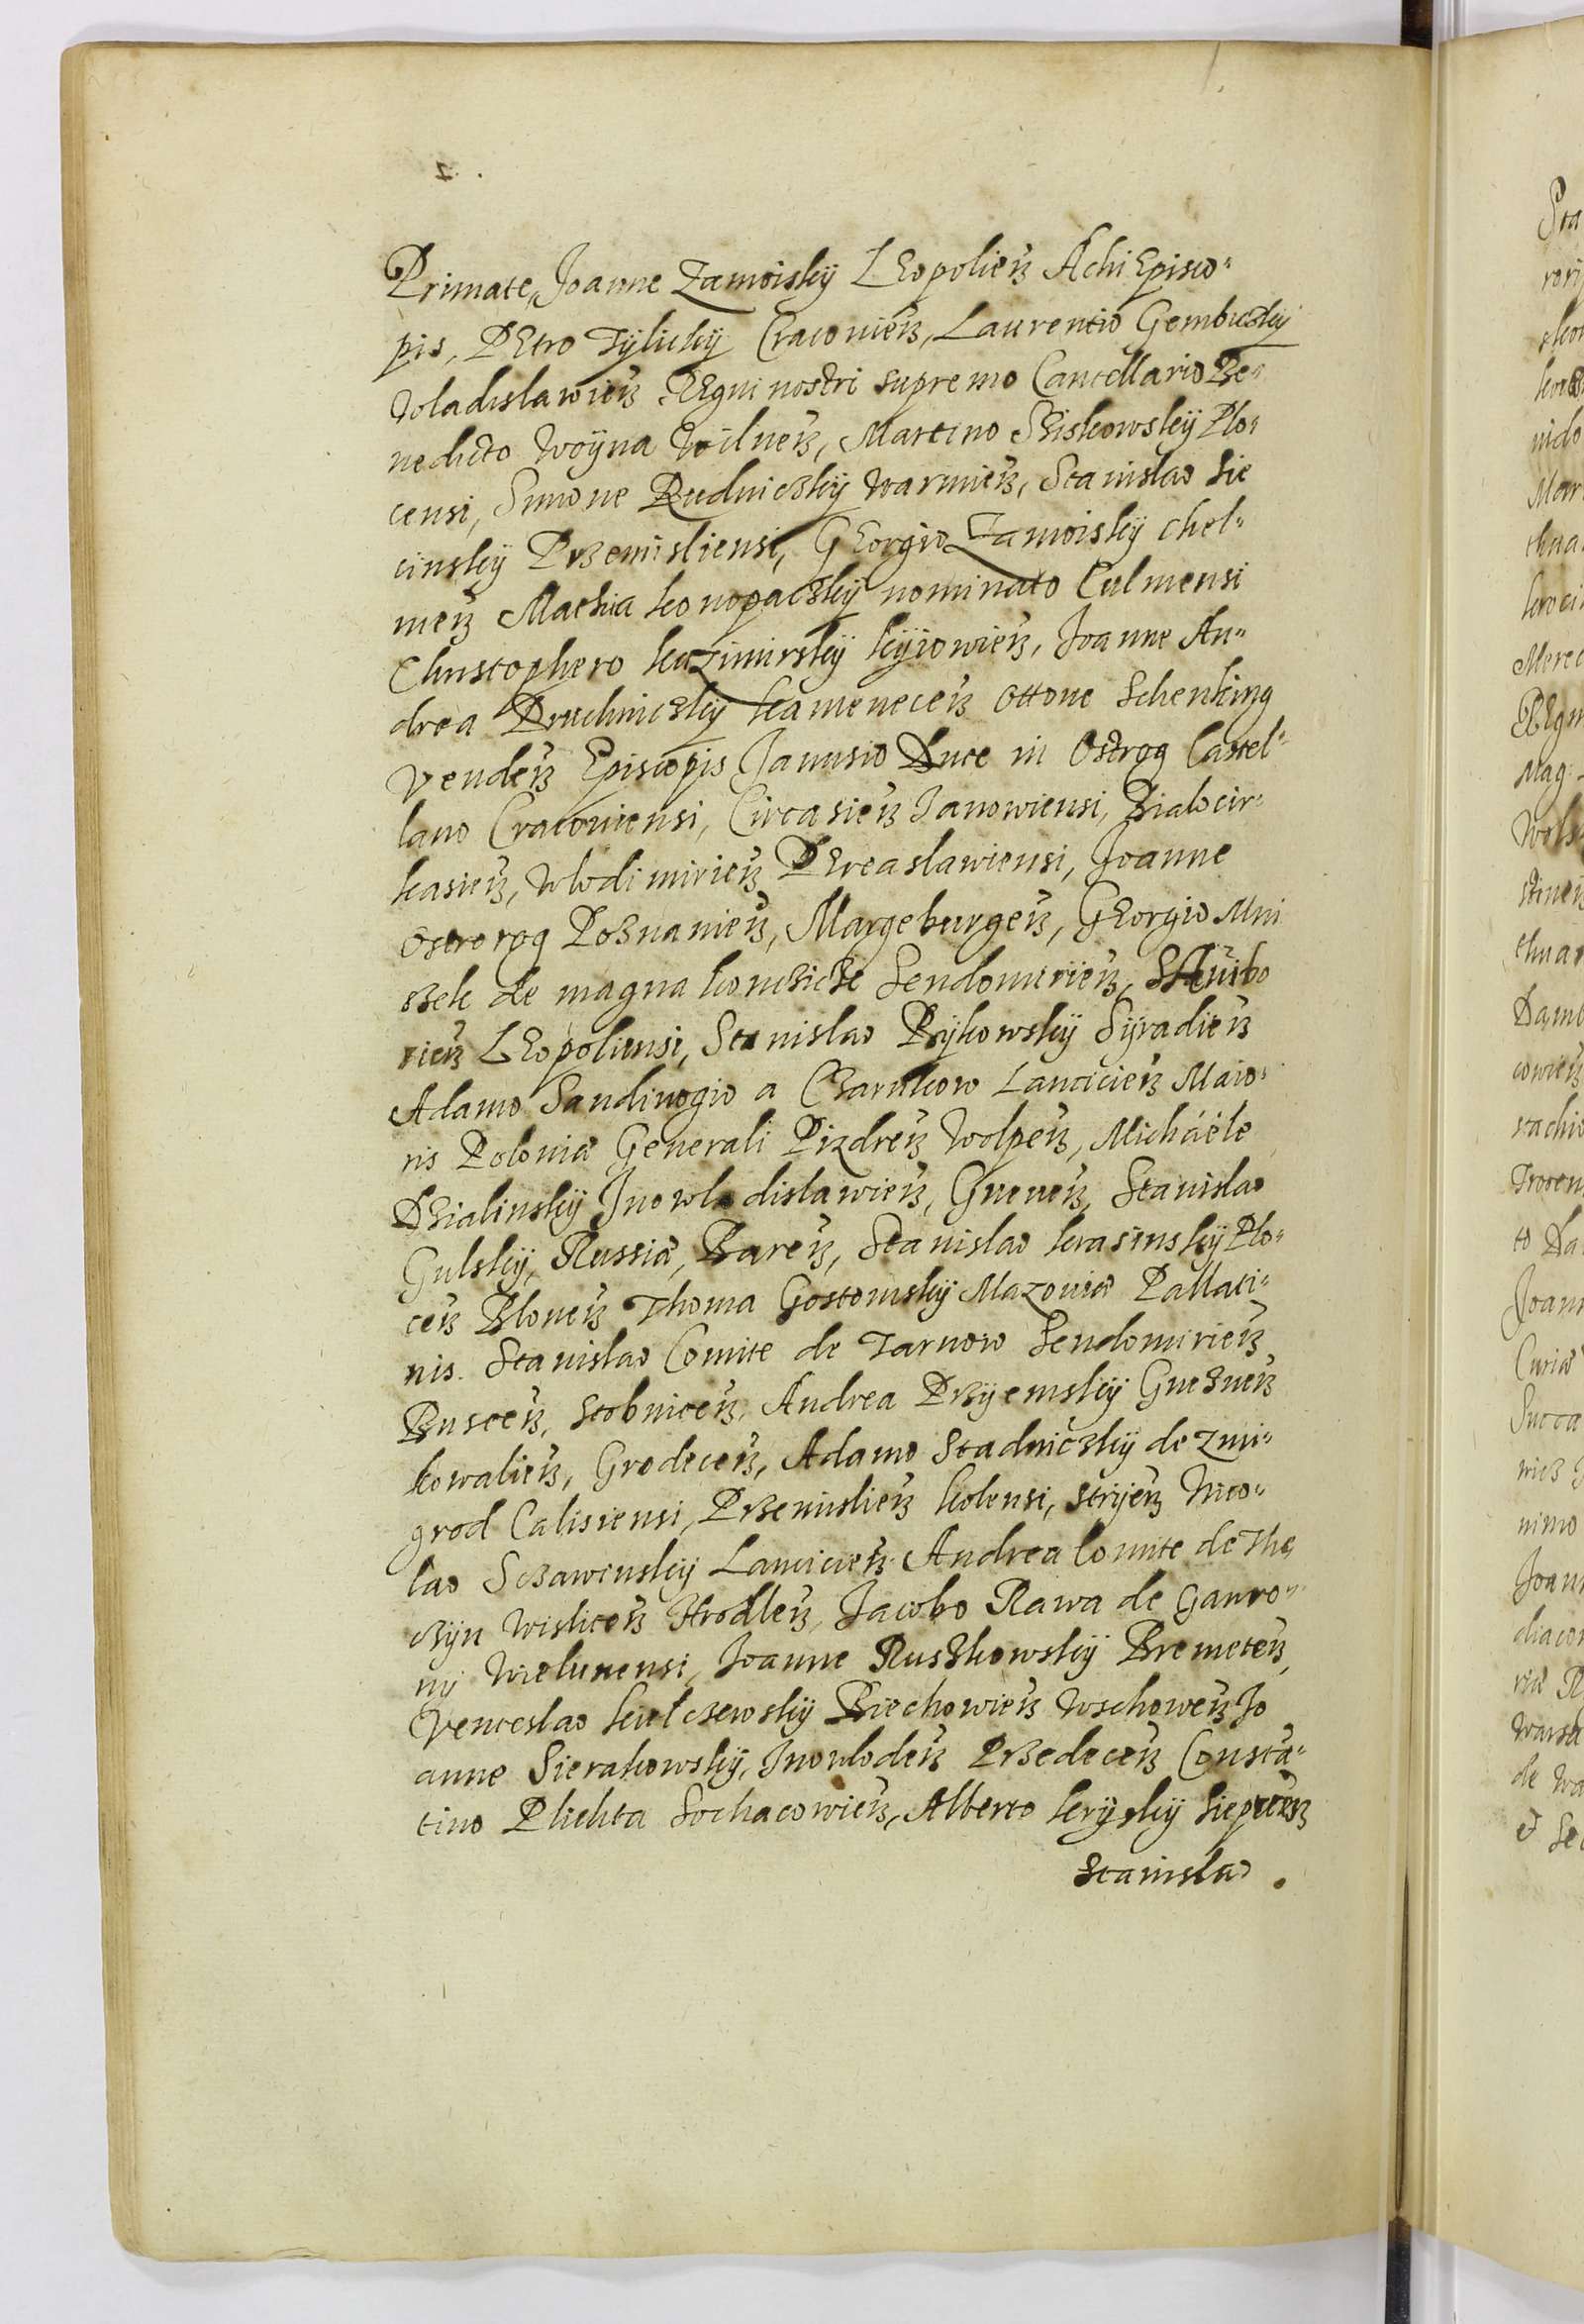 Primate, Joanne Zamoiskÿ LEopolień AchiEpisco-
pis, PEtro Tÿlickÿ Cracovień, Laurentio Gembickÿ
Wladislawień REgni nostri supremo Cancellario Be-
nedicto Woÿna Vilneń, Martino Sziskowskÿ Plo-
censi, Simone Rudniczkÿ Warmień, Stanislao Sie
cinskÿ Przemisliensi, GEorgio Zamoiskÿ chel-
meń Mathia konopaczkÿ nominato Culmensi
Christophero kazimirskÿ kÿiowień, Joanne An-
drea Pruchniczkÿ kameneceń Ottone Schenking
Vendeń Episcopis Janusio Duce in Ostrog Castel-
lano Cracoviensi, Circasień Janowiensi, Bialocir-
kasień, Wlodimirień PEreaslawiensi, Joanne
Ostrorog Poznanień, Margeburgeń, GEorgio Mni
szek de magna konczicze Sendomirień, Sambo
rień LEopoliensi, Stanislao Bÿkowskÿ Sÿradień
Adamo Sandivogio a Czarnkow Lancicień Maio-
ris Poloniæ Generali Pizdreń Wolpeń, Micháéle
Dzialinskÿ Inowladislawień, Gneveń, Stanislao
Gulskÿ, Russiæ, Bareń, Stanislao krasinskÿ Plo-
ceń Bloneń Thoma Gostomskÿ Mazoviæ Pallati-
nis. Stanislao Comite de Tarnow Sendomirień
Busceń, Stobniceń, Andrea Przÿemskÿ Gnezneń
kowalień, Grodeceń, Adamo Stadniczkÿ de Zmi-
grod Calisiensi, Przemislień kolensi, Strÿeń Nico-
lao Sczawinskÿ Lancicień Andrea Comite de The
czÿn Wisliceń Hrodleń, Jacobo Rawa de Gawro-
nÿ Wielunensi, Joanne Ruszkowskÿ Bremeteń,
Venceslao kielczewskÿ Biechowień Wschoweń Jo
anne Sierakowskÿ, Inowlodeń Przedeceń Constã-
tino Plichta Sochacowień, Alberto krÿskÿ Siepreń
Stanislao